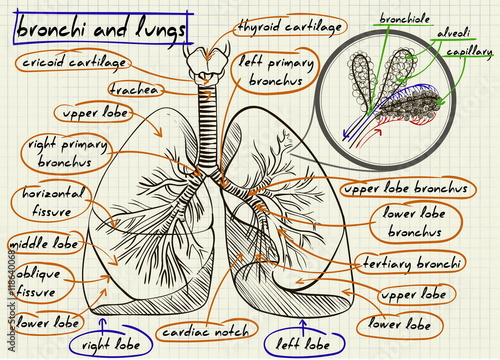 bronchi and lungs
thyroid cartilage
bronchiole
alveoli
capillary
cricoid cartilage
left primary
bronchus
trachea
upper lobe
right primary
bronchus
horizontal
fissure
middle lobe
oblique
fissure
lower lobe
right lobe
cardiac notch
left lobe
upper lobe bronchus
lower lobe
bronchus
tertiary bronchi
upper lobe
lower lobe